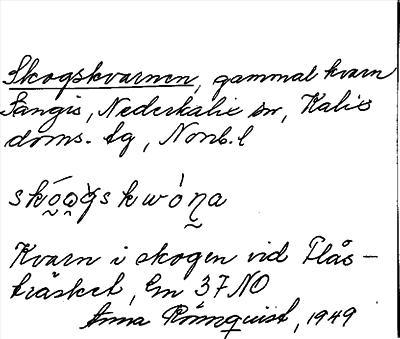 Skogskvarnen, gammal kvarn
Sangis, Nederkalix sn, Kalix
doms. tg, Nonb. l
Kvarn i skogen vid Flås-
träsket, Em 37 NO
Anna Rönnquist, 1949